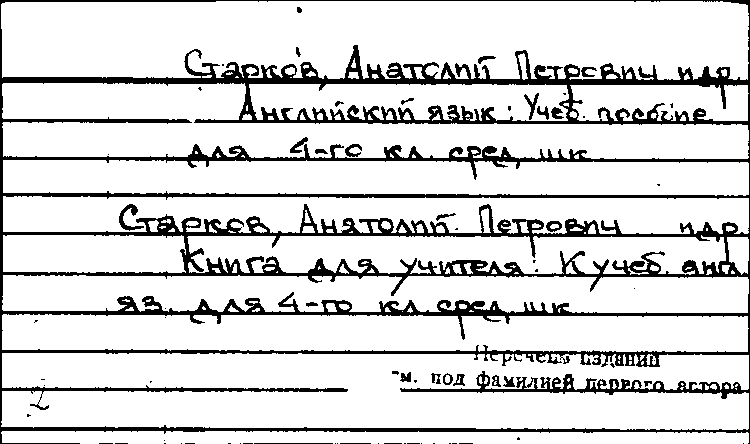 Старков, Анатолий Петрович и др.
Английский язык: Учеб. пособие
для 4-го кл. сред. шк.
Старков, Анатолий Петрович и др.
Книга для учителя: К учеб. англ.
яз. для 4-го кл. сред. шк.
Перечень изданий
см. под фамилией первого автора
2